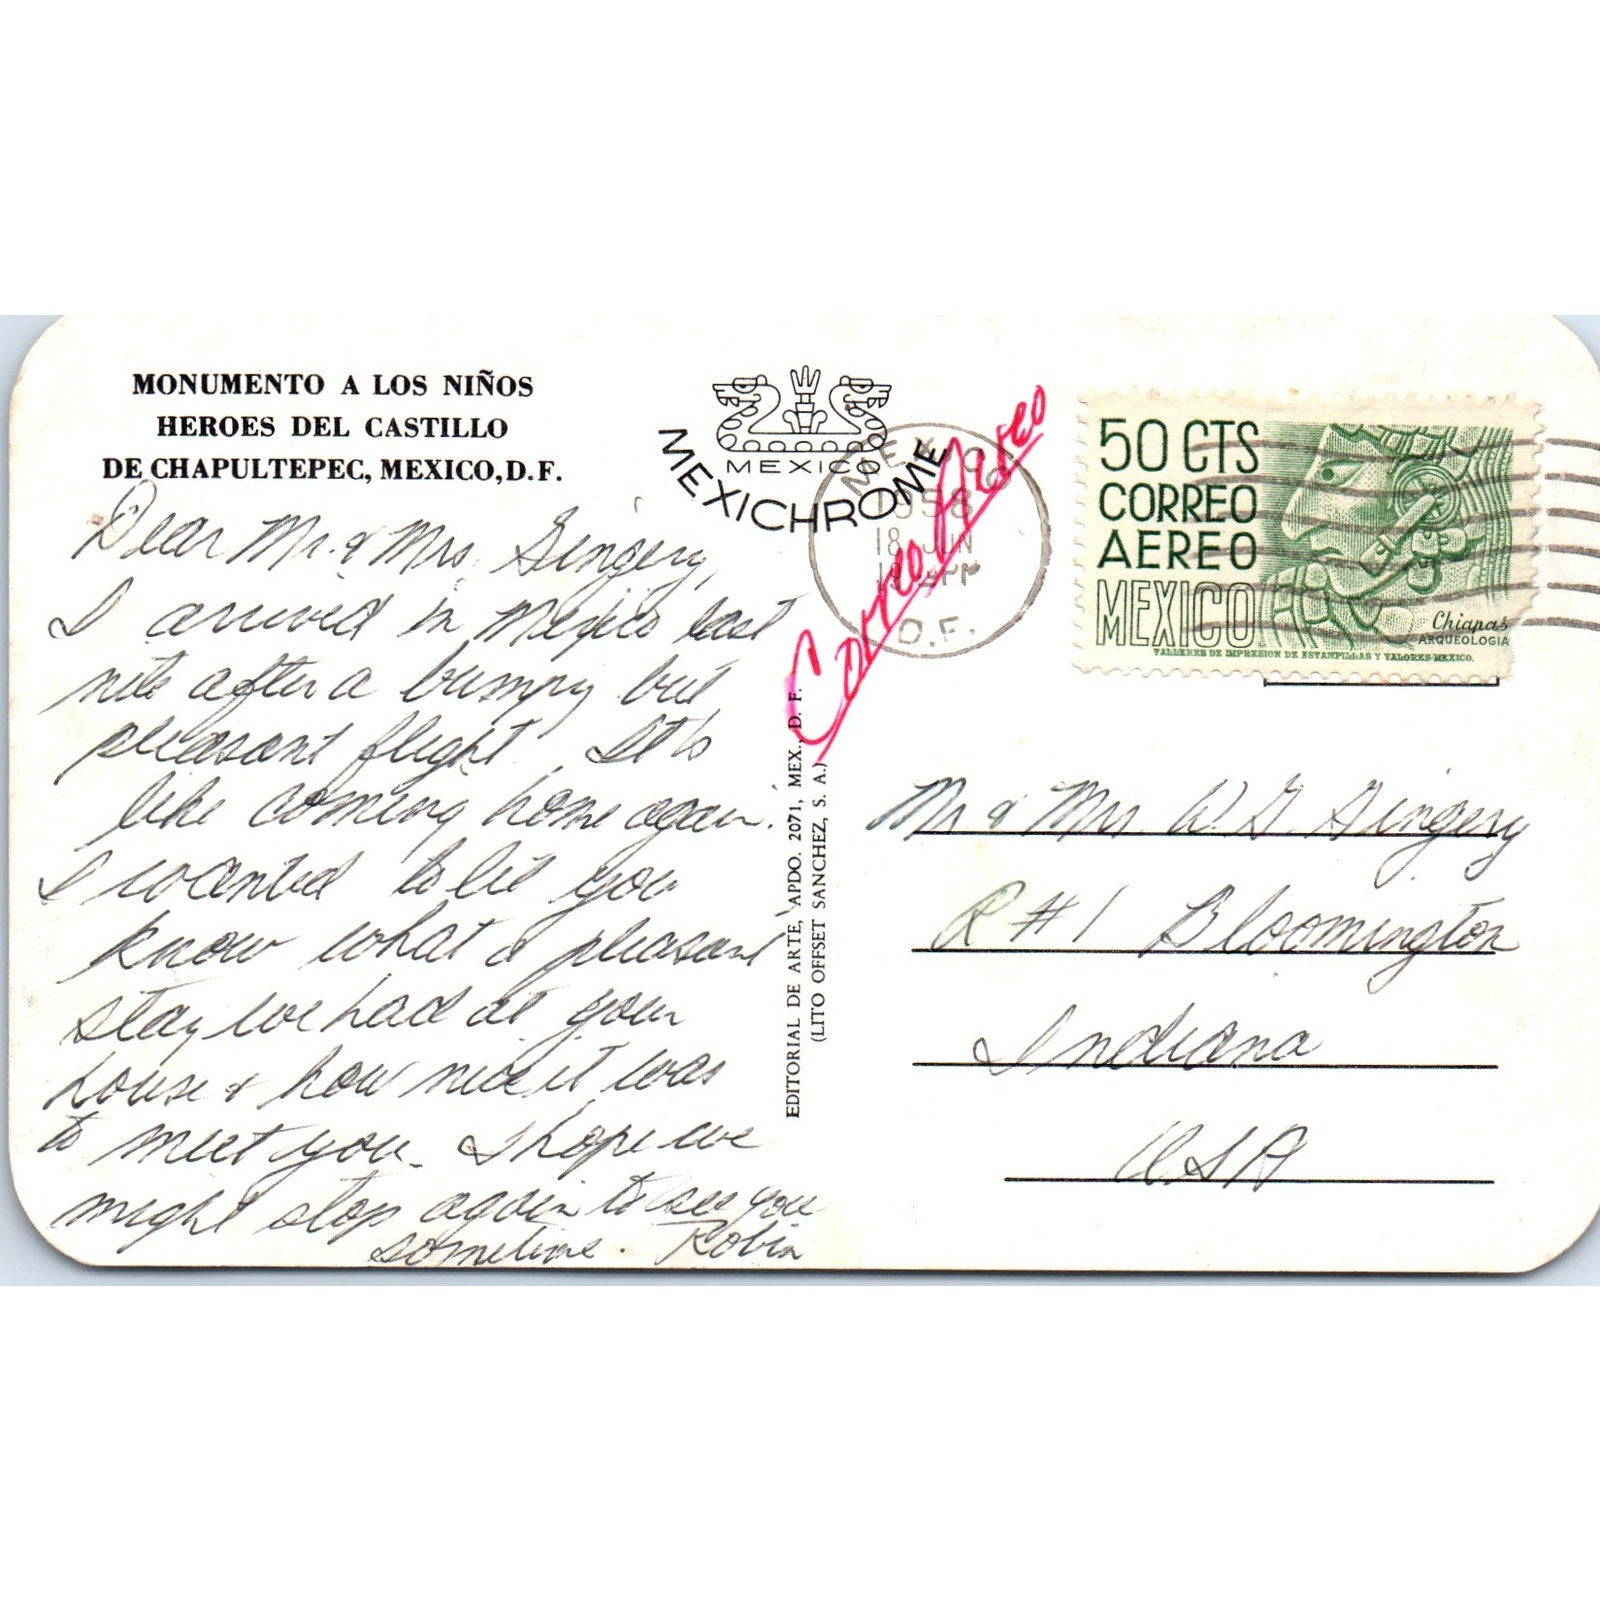 MONUMENTO A LOS NIÑOS
HEROES DEL CASTILLO
DE CHAPULTEPEC, MEXICO, D. F.
Dear Mr. & Mrs. Gingery,
I arrived in Mexico last
nite after a bumpy but
pleasant flight. It's
like coming home again.
I wanted to let you
know what a pleasant
stay we had at your
house & how nice it was
to meet you. I hope we
might stop again to see you
sometime. Robin
MEXICO
MEXICHROME
EDITORIAL DE ARTE, APDO. 2071, MEX., D. F.
(LITO OFFSET SANCHEZ, S. A.)
Correo Aereo
1958
18 JUN
D.F.
50 CTS
CORREO
AEREO
MEXICO
Chiapas
ARQUEOLOGIA
TALLERES DE IMPRESION DE ESTAMPILLAS Y VALORES-MEXICO.
Mr & Mrs W. G Gingery
R #1 Bloomington
Indiana
USA